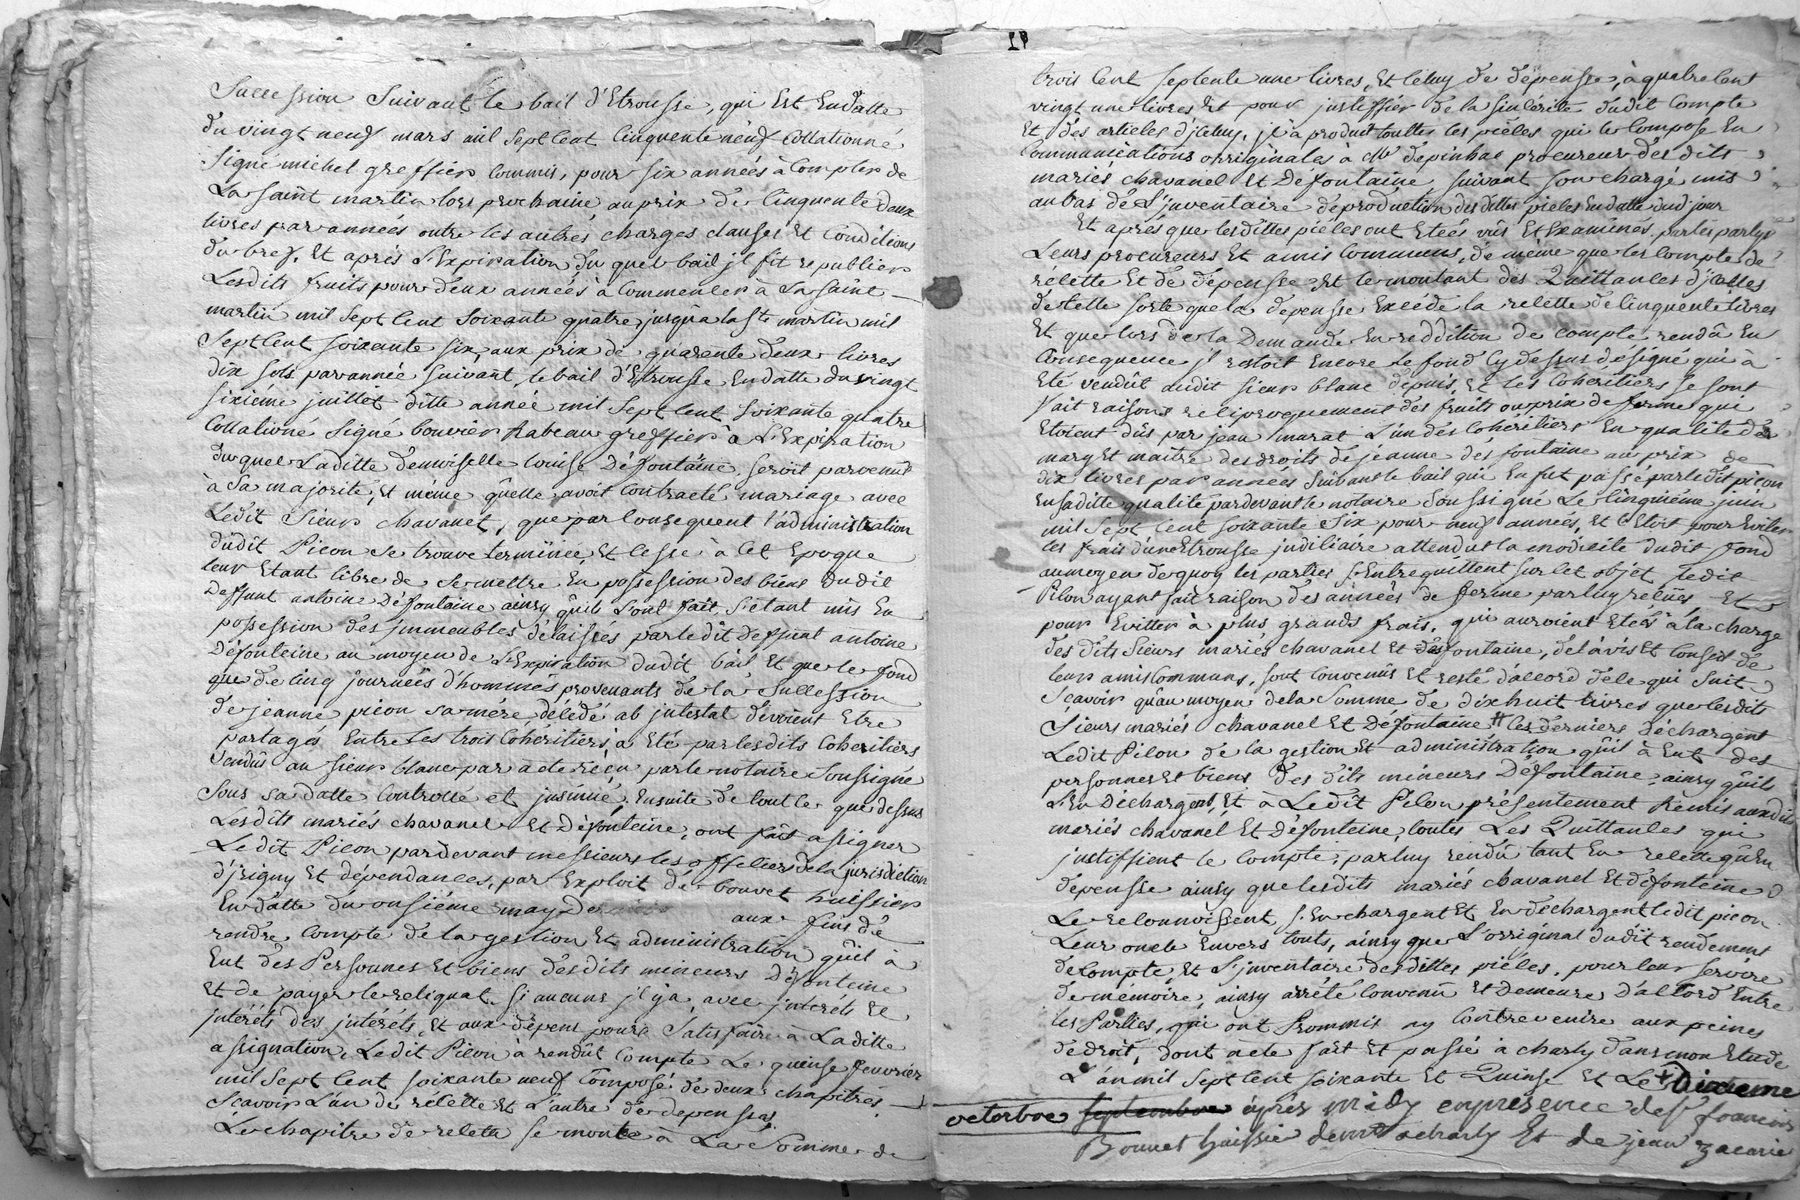 Succession Suivant le bail d'Etrousse, qui Est Endatte
du vingt neuf mars mil sept cent Cinquente neuf Collationné
Signé michel greffier Commis, pour six années à Compter de
La saint martin lors prochaine au prix de Cinquente deux
livres par années outre les autres charges clauses Et Conditions
du bref, Et après L'Expiration du quel bail jl fit republier
Lesdits fruits pour deux années à Commencer à La saint
martin mil sept cent soixante quatre, jusqu'a la ste martin mil
Sept cent soixante six, aux prix de quarente deux livres
dix sols par année suivant le bail d'Etrousse Endatte du vingt
sixiéme juillet ditte année mil sept cent soixante quatre
Collationé Signé bouvier Rabeau greffier à L'Expiration
du quel Laditte demoiselle Louise Défontaine, seroit parvenüe
à Sa majorité, Et même qu'elle avoit Contracté mariage avec
Ledit Sieur chavanel, que par Consequent l'administration
dudit Picon se trouve Terminée Et Cesse à Cet Epoque
leur Etant libre de se mettre En possession des biens dudit
Deffunt antoine Défontaine ainsy qu'ils l'ont fait, S'étant mis En
possession des jmmeubles délaissés par ledit deffunt antoine
Défonteine au moyen de L'Expiration dudit bail Et que le fond
que de Cinq journées d'hommes provenants de la Succession
de jeanne picon sa mére, décédé ab jntestat devoient Etre
partagés Entre Les trois Cohéritiers, a Eté par lesdits Coheritiers
Vendus au Sieur blanc par acte reçu par le notaire Soussigné
Sous sa datte Controllé et jnsinué, Ensuite de tout ce que dessus
Lesdits mariés chavanel Et Défonteine, ont fait assigner
Ledit Picon pardevant messieurs les officiers de la jurisdiction
d'jrigny Et dépendances, par Exploit de bouvet huissier
En datte du onsiéme may De aux fins de
rendre Compte de la gestion Et administration qu'il à
Eut des Personnes Et biens desdits mineurs Défonteine
Et de payer le reliquat, si aucuns jl y à, avec jnterêts Et
jnterêts des jntérêts, Et aux dépens pour à Satisfaire à Laditte
assignation, Ledit Picon à rendût Compte Le quinse fevvrier
mil sept cent soixante neuf Composé de deux chapitres
Scavoir L'un de recette Et L'autre de depenses
Le chapitre de recette se monte à La Somme de
trois Cent septente une livres, Et Celuy de dépense, à quatre Cent
vingt une livres Et pour justiffier de la sincérité dudit Compte
Et des articles d'jceluy, jl a produit touttes les piéces qui le Compose En
Communications orriginales à Me dépinhac procureur desdits
mariés chavanel Et Défontaine, suivant son chargé mis
au bas de L'jnventaire de production desdittes pieces En datte dud jour
Et aprés que lesdittes piéces ont Etées vüe Et Examinés par les partys
Leurs procureurs Et amis Communs, de même que les Compte de
recette Et de dépense, Et le montant des Quittances d'jcelles
de telle sorte que la depense Excéde la recette de Cinquente livres
Et que lors de la Demande En reddition de compte rendû En
Consequence jl restoit Encore Le fond Cy dessus désigné qui à
Eté vendût audit sieur blanc depuis, Et les Coheritiers se sont
fait raisons reciproquement des fruits ou prix de ferme qui
Etoient dûs par jean murat L'un des Coheritiers En qualité de
mary Et maitre des droits de jeanne des fontaine au prix de
dix livres par années suivant le bail qui En fut passé par ledit picon
En saditte qualité pardevant le notaire Soussigné Le Cinquiéme juin
mil sept Cent soixante Six pour neuf années, Et Cestoit pour Eviter
les frais d'une Etrousse judiciaire attendut la modicité dudit fond
au moyen de quoy les parties s'Entrequittent sur Cet objet, ledit
Picon ayant fait raison des années de ferme par luy reçûes Et
pour Evitter à plus grands frais, qui auroient Etés à la charge
des dits Sieurs mariés chavanel Et Défontaine, de l'avis Et Conseil de
leurs amis Communs, sont Convenüs Et resté d'accord de ce qui Suit
Scavoir qu'au moyen de la Somme de dix huit livres que lesdits
Sieurs mariés chavanel Et Défontaine # Ces derniers déchargent
Ledit Picon de la gestion Et administration qu'il à Eut des
personnes Et biens des dits mineurs Défontaine, ainsy qu'ils
L'En Déchargent, Et à Ledit Picon présentement Remis auxdits
mariés chavanel Et Défonteine, toutes Les Quittances qui
justiffient le Compte, par luy rendû tant En recette qu'En
dépensse ainsy que lesdits mariés chavanel Et défonteine
Le reconnoissent, s'En chargent Et En dechargent ledit picon
Leur oncle Envers touts, ainsy que L'orriginal dudit rendement
de Compte, Et L'jnventaire desdittes piéces, pour leur servire
de mémoire, ainsy arrêté Convenû Et Demeure D'accord Entre
les Parties, qui ont Prommis ny Contrevenire aux peines
de droit, dont acte fait Et passé à charly dans mon Etude
L'an mil sept Cent soixante Et Quinse Et Le Dixieme
octorbre septembre après midy en présence de sr francois
Bonnet huissier demt a charly Et de jean zacarie